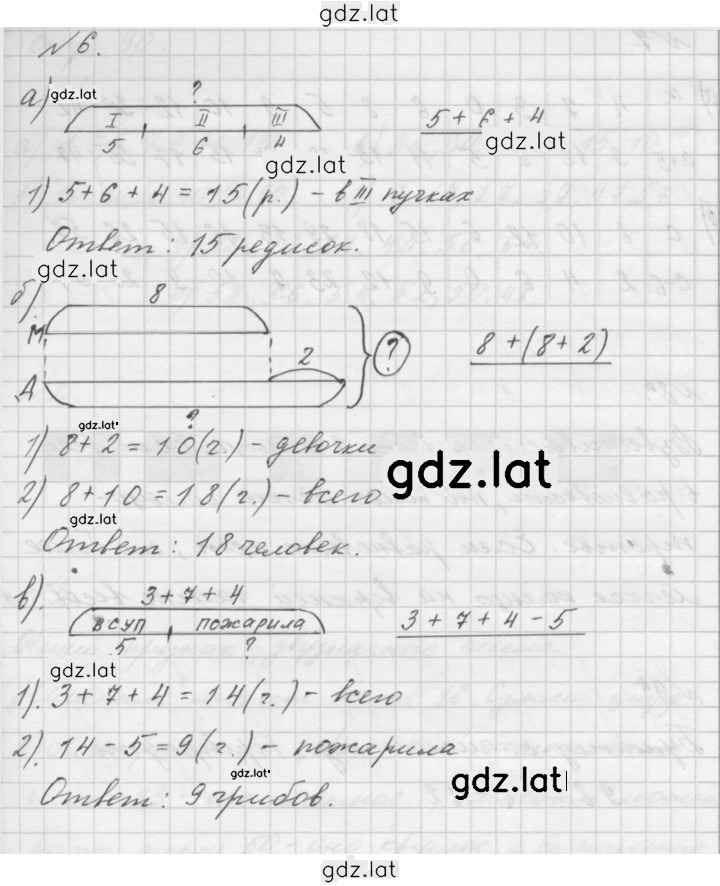 gdz.lat
№ 6.
а) gdz.lat ?
I II III 5 + 6 + 4
5 6 4 gdz.lat gdz.lat
1) 5 + 6 + 4 = 15 (р.) – в III пучках
Ответ : 15 редисок.
gdz.lat
б) 8
М ? 8 + (8 + 2)
2
Д
gdz.lat ?
1) 8 + 2 = 10 (г.) – девочки
gdz.lat
2) 8 + 10 = 18 (г.) – всего
gdz.lat
Ответ : 18 человек.
в). 3 + 7 + 4
В СУП ПОЖАРИЛА 3 + 7 + 4 – 5
5 ?
gdz.lat
1). 3 + 7 + 4 = 14 (г.) – всего
2). 14 – 5 = 9 (г.) – пожарила
gdz.lat gdz.lat
Ответ : 9 грибов.
gdz.lat